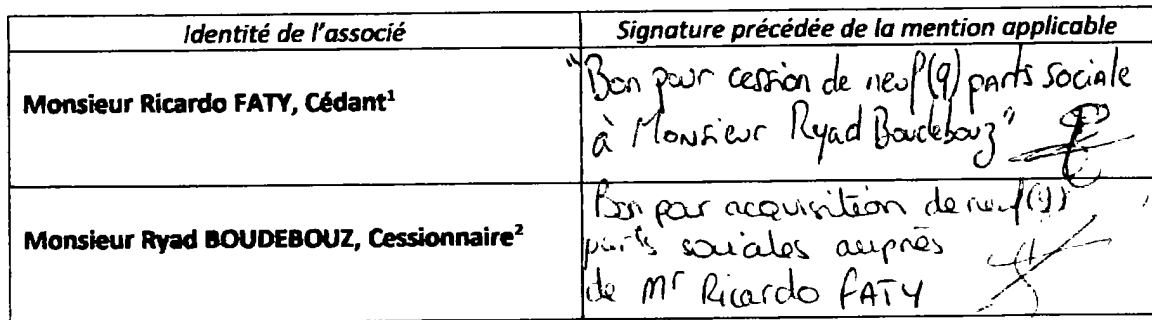 Identité de l'associé
Signature précédée de la mention applicable
Monsieur Ricardo FATY, Cédant¹
"Bon pour cession de neuf (9) parts sociale
à Monsieur Ryad Boudebouz"
Monsieur Ryad BOUDEBOUZ, Cessionnaire²
Bon pour acquisition de neuf (9)
parts sociales auprès
de Mr Ricardo FATY